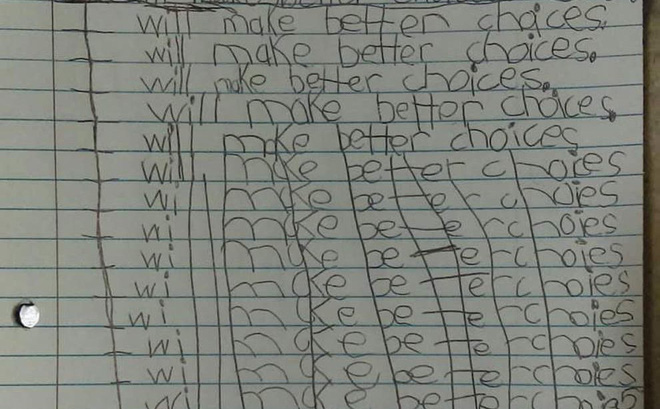 I will make better choices.
I will make better choices.
I will make better choices.
I will make better choices.
I will make better choices
I will make better choies
I will make better choies
I will make better choies
I will make better choies
I will make better choies
I will make better choies
I will make better choies
I will make better choies